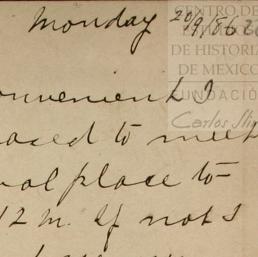 Monday 20/9/86
CENTRO DE
DE HISTORIA
DE MEXICO
FUNDACIÓN
Carlos Sli
onvenient I
osed to meet
al place to-
12 m. If not I